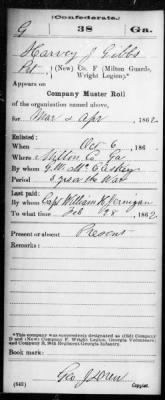 (Confederate.)
G 38 Ga.
Harvey J Gibbs
Pvt, (New) Co. F (Milton Guards,
Wright Legion).*
Appears on
Company Muster Roll
of the organization named above,
for Mar & Apr, 1862.
Enlisted:
When Oct 6, 186
Where Milton Co Ga
By whom G. W. McCleskey
Period 3 years or the War
Last paid:
By whom Capt William R Jernigan
To what time Feb 28, 1862.
Present or absent Present
Remarks:
*This company was successively designated as (Old) Company
D and (New) Company F, Wright Legion, Georgia Volunteers
and Company 38th Regiment Georgia Infantry.
Book mark:
(642) Copyist.